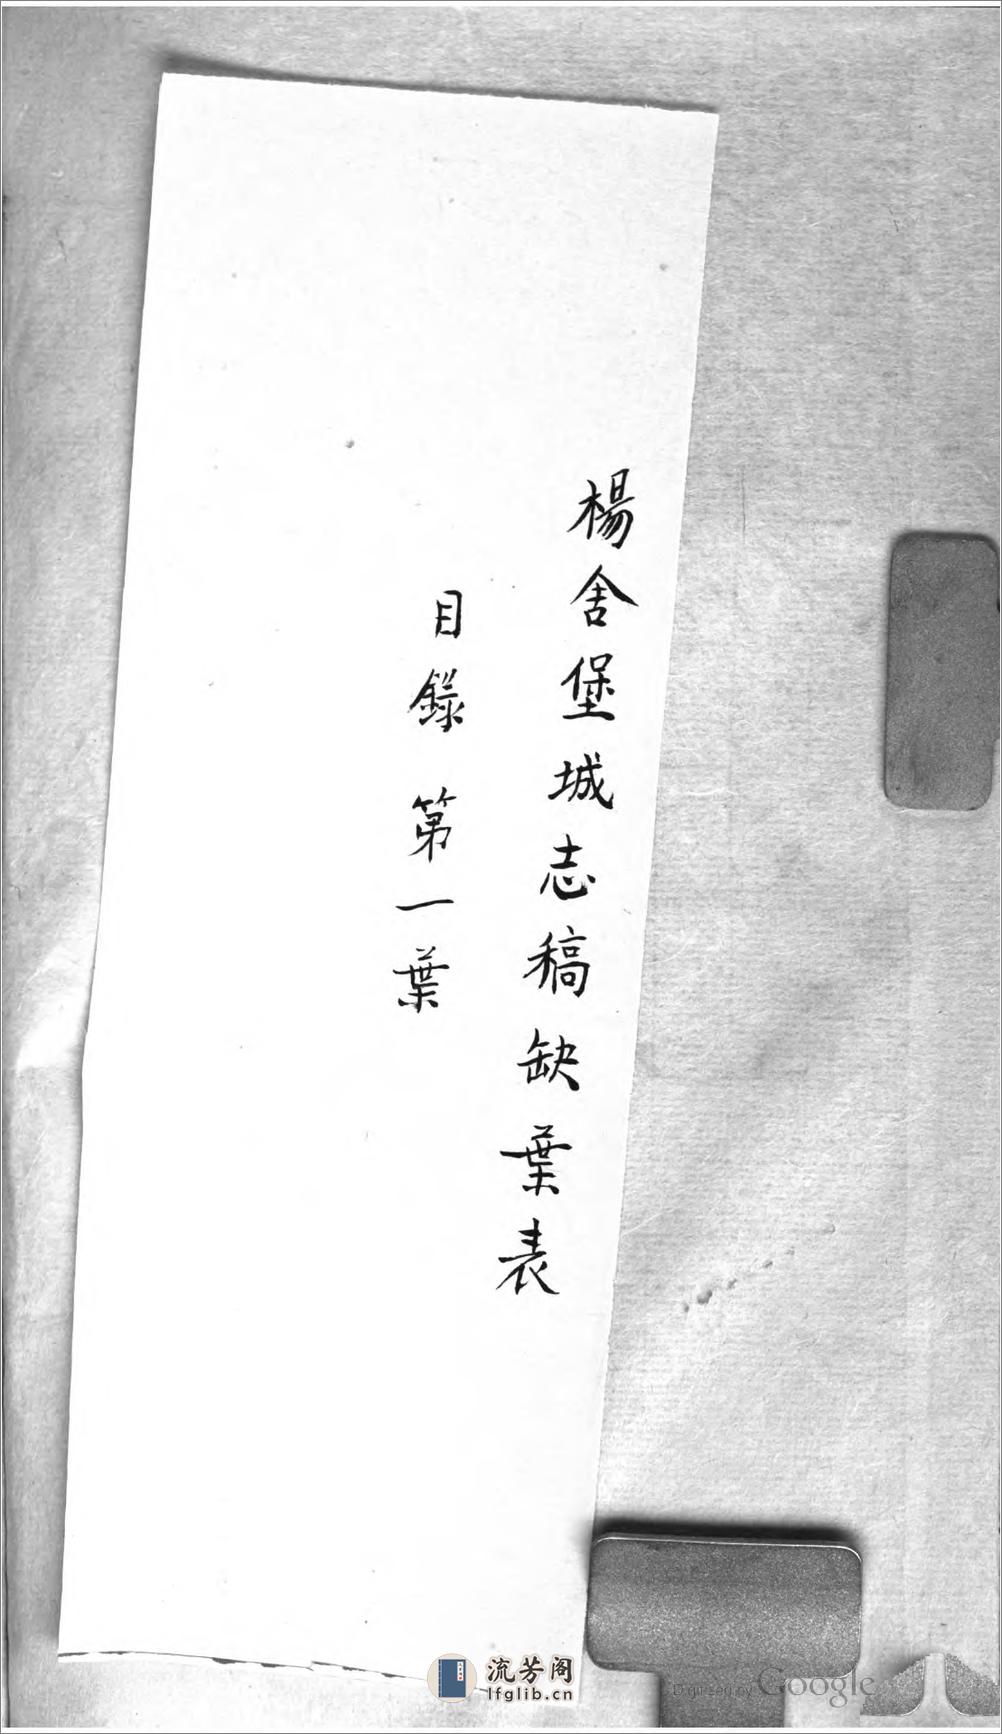 楊舍堡城志稿缺葉表
目錄 第一葉
流芳阁
lfglib.cn
Digitized by Google